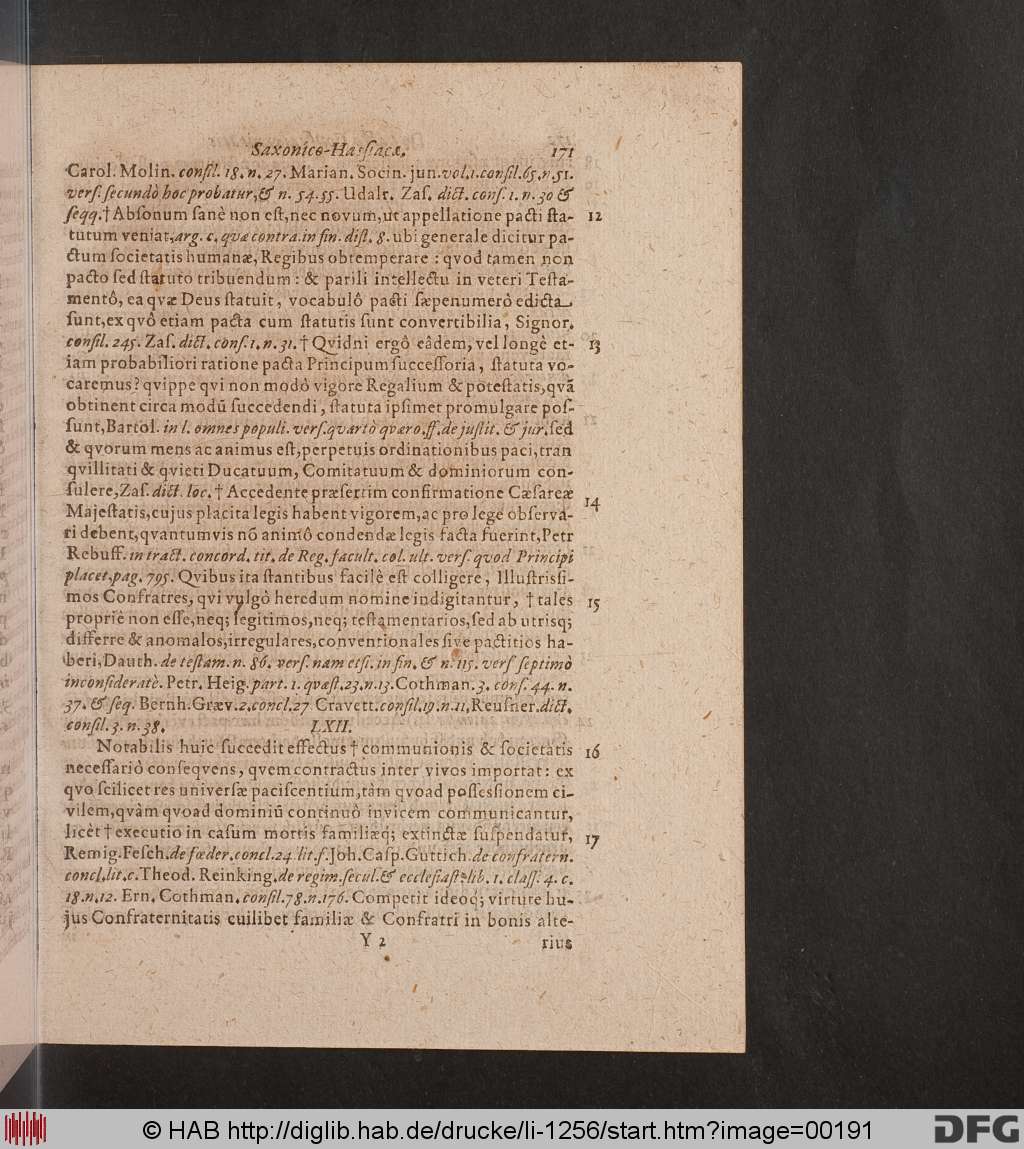 Saxonico-Hassiacæ. 171
Carol. Molin. consil. 18. n. 27. Marian. Socin. jun. vol. 1. consil. 65. n. 51.
vers. secundò hoc probatur, & n. 54. 55. Udalr. Zas. dict. cons. 1. n. 30 &
seqq. † Absonum sanè non est, nec novum, ut appellatione pacti sta- 12
tutum veniat, arg. c. quæ contra. in fin. dist. 8. ubi generale dicitur pa-
ctum societatis humanæ, Regibus obtemperare : qvod tamen non
pacto sed statuto tribuendum : & parili intellectu in veteri Testa-
mentô, ea qvæ Deus statuit, vocabulô pacti sæpenumerò edicta
sunt, ex qvô etiam pacta cum statutis sunt convertibilia, Signor.
consil. 245. Zas. dict. cons. 1. n. 31. † Qvidni ergô eâdem, vel longè et- 13
iam probabiliori ratione pacta Principum successoria, statuta vo-
caremus? qvippe qvi non modò vigore Regalium & potestatis, qvã
obtinent circa modũ succedendi, statuta ipsimet promulgare pos-
sunt, Bartol. in l. omnes populi. vers. quartò quæro. ff. de justit. & jur. sed
& qvorum mens ac animus est, perpetuis ordinationibus paci, tran
qvillitati & qvieti Ducatuum, Comitatuum & dominiorum con-
sulere, Zas. dict. loc. † Accedente præsertim confirmatione Cæsareæ 14
Majestatis, cujus placita legis habent vigorem, ac pro lege observa-
ri debent, qvantumvis nõ animô condendæ legis facta fuerint, Petr
Rebuff. in tract. concord. tit. de Reg. facult. col. ult. vers. quod Principi
placet, pag. 795. Qvibus ita stantibus facilè est colligere, Illustrissi-
mos Confratres, qvi vulgò heredum nomine indigitantur, † tales 15
propriè non esse, neq; legitimos, neq; testamentarios, sed ab utrisq;
differre & anomalos, irregulares, conventionales sive pactitios ha-
beri, Dauth. de testam. n. 86. vers. nam etsi. in fin. & n. 115. vers septimò
inconsideratè. Petr. Heig. part. 1. quæst. 23. n. 13. Cothman. 3. cons. 44. n.
37. & seq. Bernh. Græv. 2. concl. 27 Cravett. consil. 19. n. 11, Reusner. dict.
consil. 3. n. 38. LXII.
Notabilis huic succedit effectus † communionis & societatis 16
necessariò conseqvens, qvem contractus inter vivos importat : ex
qvo scilicet res universæ paciscentium, tàm qvoad possessionem ci-
vilem, qvàm qvoad dominiũ continuò invicem communicantur,
licèt † executio in casum mortis familiæq; extinctæ suspendatur, 17
Remig. Fesch. de fœder. concl. 24. lit. f. Joh. Casp. Guttich. de confratern.
concl. lit. c. Theod. Reinking. de regim. secul. & ecclesiast. lib. 1. class. 4. c.
18. n. 12. Ern. Cothman. consil. 78. n. 176. Competit ideoq; virtute hu-
jus Confraternitatis cuilibet familiæ & Confratri in bonis alte-
Y 2 rius
© HAB http://diglib.hab.de/drucke/li-1256/start.htm?image=00191
DFG